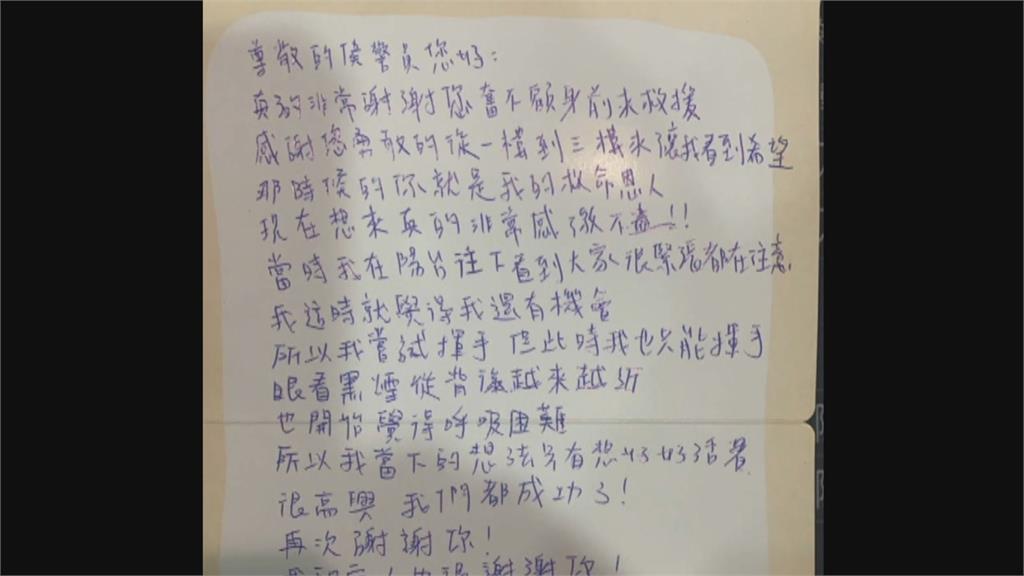 尊敬的侯警員您好:
真的非常謝謝您奮不顧身前來救援
感謝您勇敢的從一樓到三樓來讓我看到希望
那時候的你就是我的救命恩人
現在想來真的非常感激不盡!!
當時我在陽台往下看到大家很緊張都在注意
我這時就覺得我還有機會
所以我嘗試揮手 但此時我也只能揮手
眼看黑煙從背後越來越近
也開始覺得呼吸困難
所以我當下的想法只有想好好活著
很高興 我們都成功了!
再次謝謝你!
謝謝你!